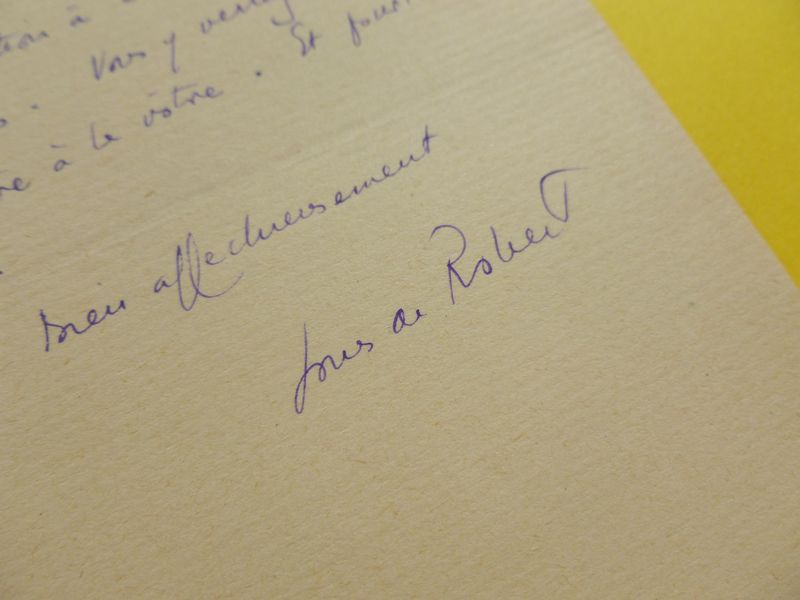 à
Vous y
à la vôtre. Et
Bien affectueusement
Louis de Robert